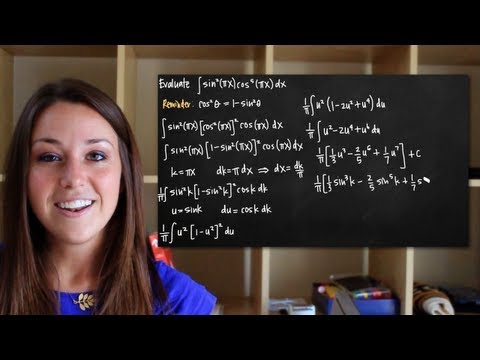 Evaluate ∫sin²(πx)cos⁵(πx)dx
Reminder: cos²θ=1-sin²θ
∫sin²(πx)[cos²(πx)]²cos(πx) dx
∫sin²(πx)[1-sin²(πx)]²cos(πx)dx
k=πx dk=πdx ⇒ dx=dk/π
1/π∫sin²k[1-sin²k]²cosk dk
u=sink du=cosk dk
1/π∫u²[1-u²]²du
1/π∫u²(1-2u²+u⁴)du
1/π∫u²-2u⁴+u⁶du
1/π[1/3u³-2/5u⁵+1/7u⁷]+C
1/π[1/3sin³k-2/5sin⁵k+1/7s